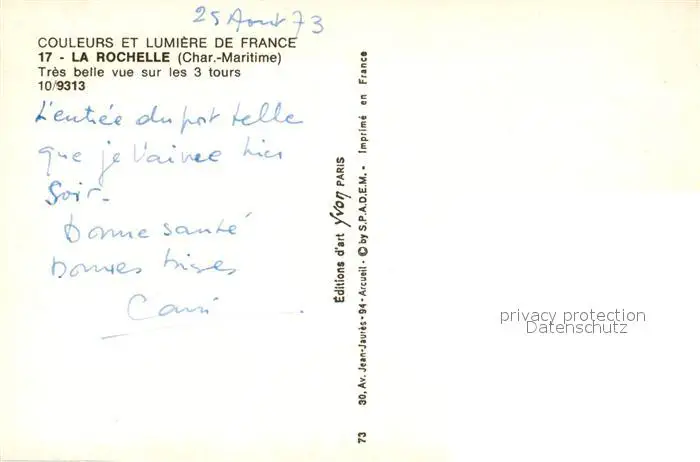 25 Août 73
COULEURS ET LUMIÈRE DE FRANCE
17 - LA ROCHELLE (Char.-Maritime)
Très belle vue sur les 3 tours
10/9313
L'entrée du port telle
que je l'ai vue hier
Soir.
Bonne santé
Bonnes bises
Éditions d'art Yvon PARIS
30, Av. Jean-Jaurès - 94 - Arcueil - © by S.P.A.D.E.M. - Imprimé en France
73
privacy protection
Datenschutz